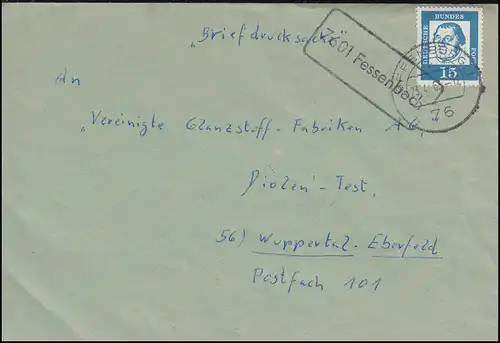 „Briefdrucksache"
7601 Fessenbach
DEUTSCHE BUNDESPOST
15
76
An
„Vereinigte Glanzstoff-Fabriken AG,
Diolen-Test,
56) Wuppertal-Elberfeld
Postfach 101